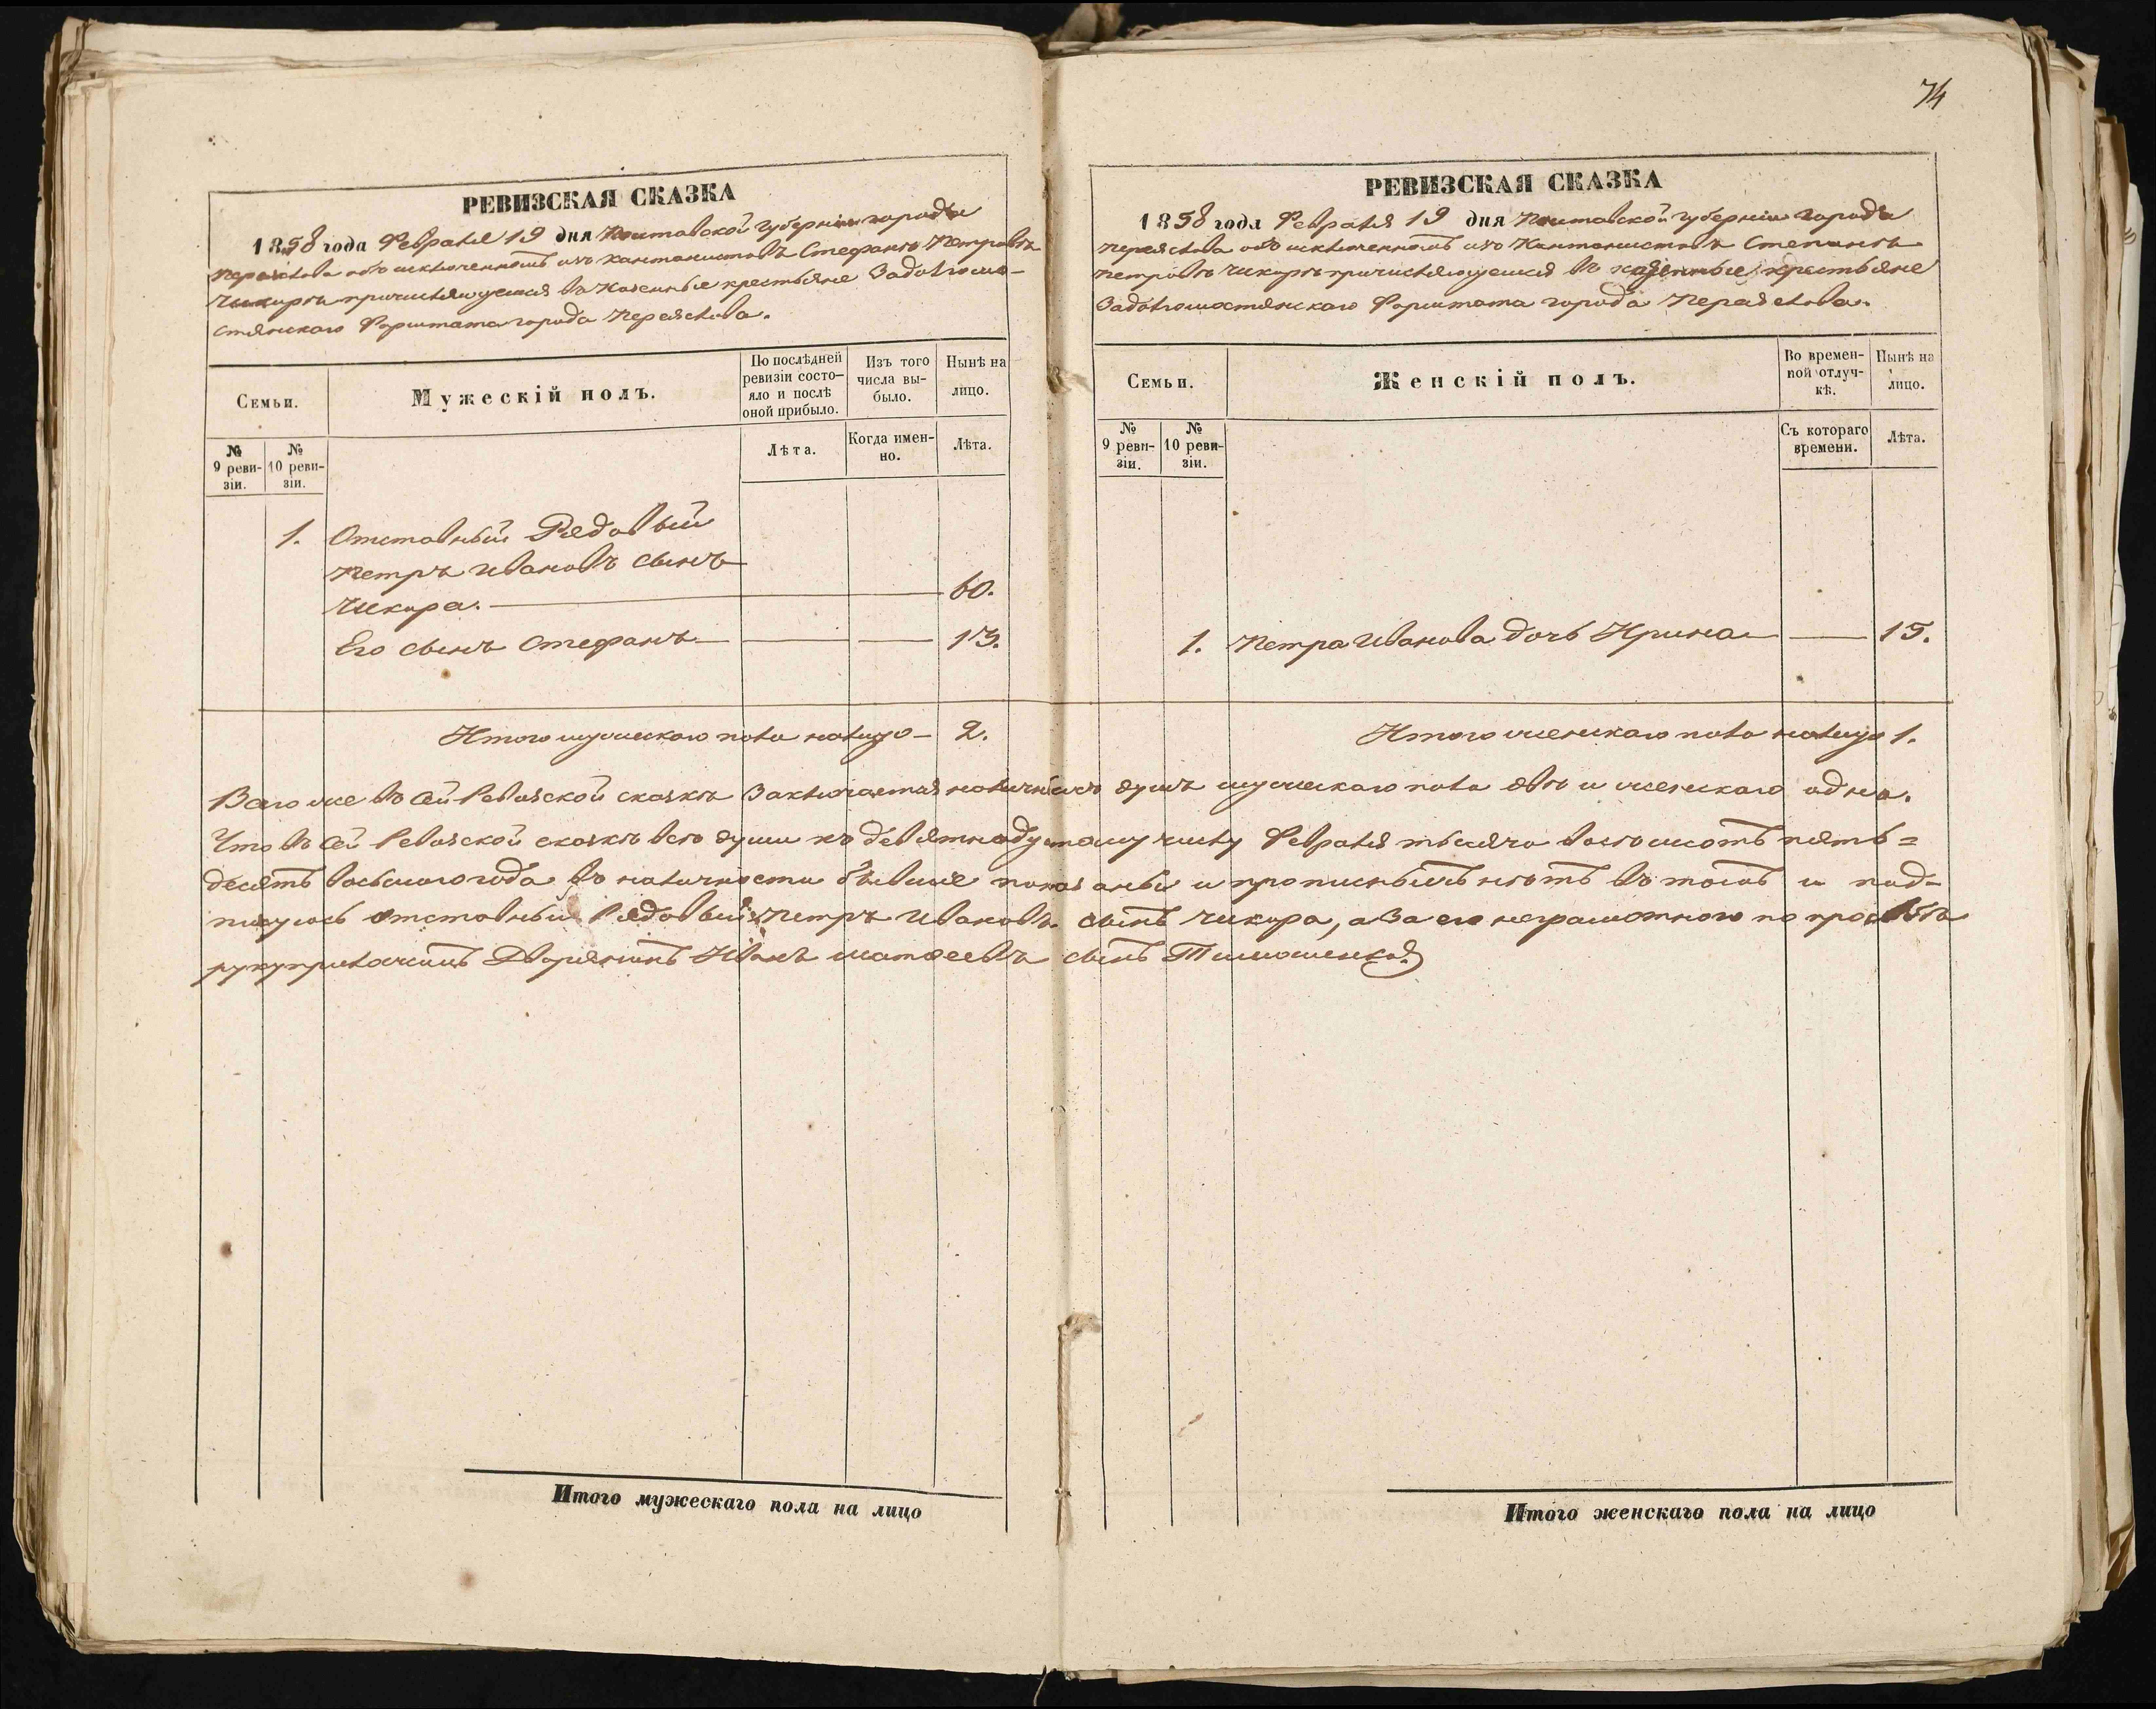 74
РЕВИЗСКАЯ СКАЗКА
1858 года Февраля 19 дня Полтавской губерніи города
Переяслова объ исключенномъ изъ кантонистовъ Стефанѣ Петровѣ
Чикирѣ причисляющемся въ Казенные крестьяне Задолгомо-
стянскаго Форштата города Переяслова.
Семьи.
Мужескій полъ.
По послѣдней
ревизіи состо-
яло и послѣ
оной прибыло.
Изъ того
числа вы-
было.
Нынѣ на
лицо.
№
9 реви-
зіи.
№
10 реви-
зіи.
Лѣта.
Когда имен-
но.
Лѣта.
1. Отставный Рядовый
Петръ Ивановъ сынъ
Чикира. 60.
Его сынъ Стефанъ 13.
Итого мужескаго пола налицо 2.
РЕВИЗСКАЯ СКАЗКА
1858 года Февраля 19 дня Полтавской губерніи города
Переяслова объ исключенномъ изъ Кантонистовъ Степанѣ
Петровѣ Чикирѣ причисляющемся въ казенные крестьяне
Задолгомостянскаго Форштата города Переяслова.
Семьи.
Женскій полъ.
Во времен-
ной отлуч-
кѣ.
Нынѣ на
лицо.
№
9 реви-
зіи.
№
10 реви-
зіи.
Съ котораго
времени.
Лѣта.
1. Петра Иванова дочь Ирина 15.
Итого женскаго пола налицо 1.
Всего же въ сей Ревизской сказкѣ заключается наличныхъ душъ мужескаго пола двѣ и женскаго одна.
Что въ сей Ревизской сказкѣ всѣ души къ девятнадцатому числу Февраля тысяча восемьсотъ пять=
десятъ восьмого года въ наличности бывшие показаны и прописныхъ нѣтъ въ томъ и под-
писуюсь отставный Рядовый Петръ Ивановъ сынъ Чикира, а за его неграмотного по прозбѣ
рукуприложилъ Дворянинъ Иванъ матвеевъ сынъ Тимошенко
Итого мужескаго пола на лицо
Итого женскаго пола на лицо